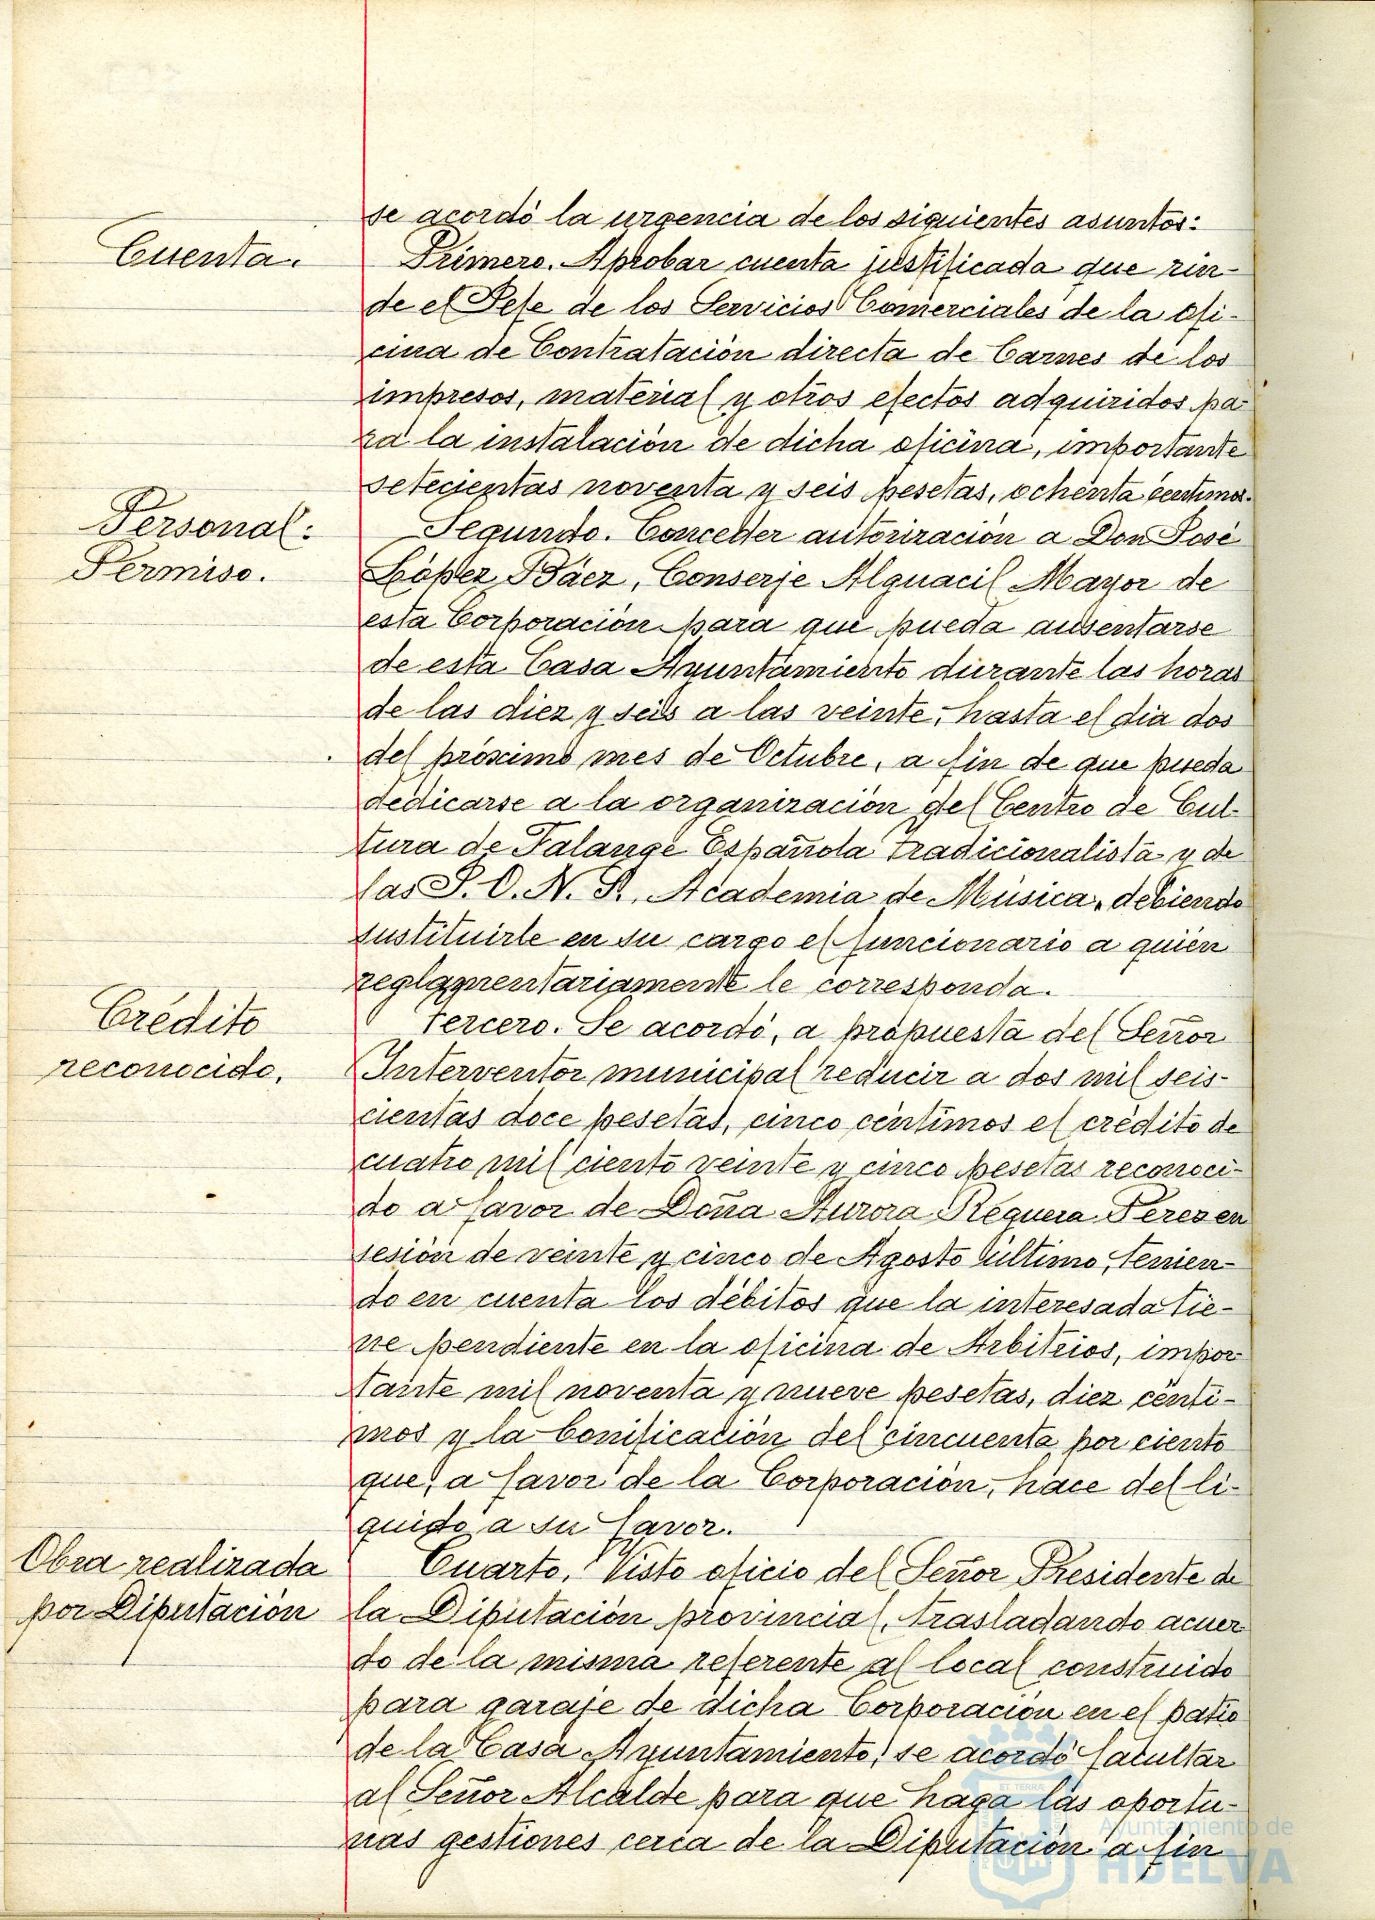 se acordó la urgencia de los siguientes asuntos:
Cuenta.
Primero. Aprobar cuenta justificada que rin-
de el Jefe de los Servicios Comerciales de la ofi-
cina de Contratación directa de Carnes de los
impresos, material y otros efectos adquiridos pa-
ra la instalación de dicha oficina, importante
setecientas noventa y seis pesetas, ochenta céntimos.
Personal:
Permiso.
Segundo. Conceder autorización a Don José
López Báez, Conserje Alguacil Mayor de
esta Corporación para que pueda ausentarse
de esta Casa Ayuntamiento durante las horas
de las diez y seis a las veinte, hasta el día dos
del próximo mes de Octubre, a fin de que pueda
dedicarse a la organización del Centro de Cul-
tura de Falange Española Tradicionalista y de
las J. O. N. S., Academia de Música, debiendo
sustituirle en su cargo el funcionario a quién
reglamentariamente le corresponda.
Crédito
reconocido.
Tercero. Se acordó, a propuesta del Señor
Interventor municipal reducir a dos mil seis-
cientas doce pesetas, cinco céntimos el crédito de
cuatro mil ciento veinte y cinco pesetas reconoci-
do a favor de Doña Aurora Requera Perez en
sesión de veinte y cinco de Agosto último, tenien-
do en cuenta los débitos que la interesada tie-
ne pendiente en la oficina de Arbitrios, impor-
tante mil noventa y nueve pesetas, diez cénti-
mos y la bonificación del cincuenta por ciento
que, a favor de la Corporación, hace del lí-
quido a su favor.
Obra realizada
por Diputación
Cuarto. Visto oficio del Señor Presidente de
la Diputación provincial, trasladando acuer-
do de la misma referente al local construido
para garaje de dicha Corporación en el patio
de la Casa Ayuntamiento, se acordó facultar
al Señor Alcalde para que haga las oportu-
nas gestiones cerca de la Diputación a fin
ET TERRÆ
Ayuntamiento de
HUELVA